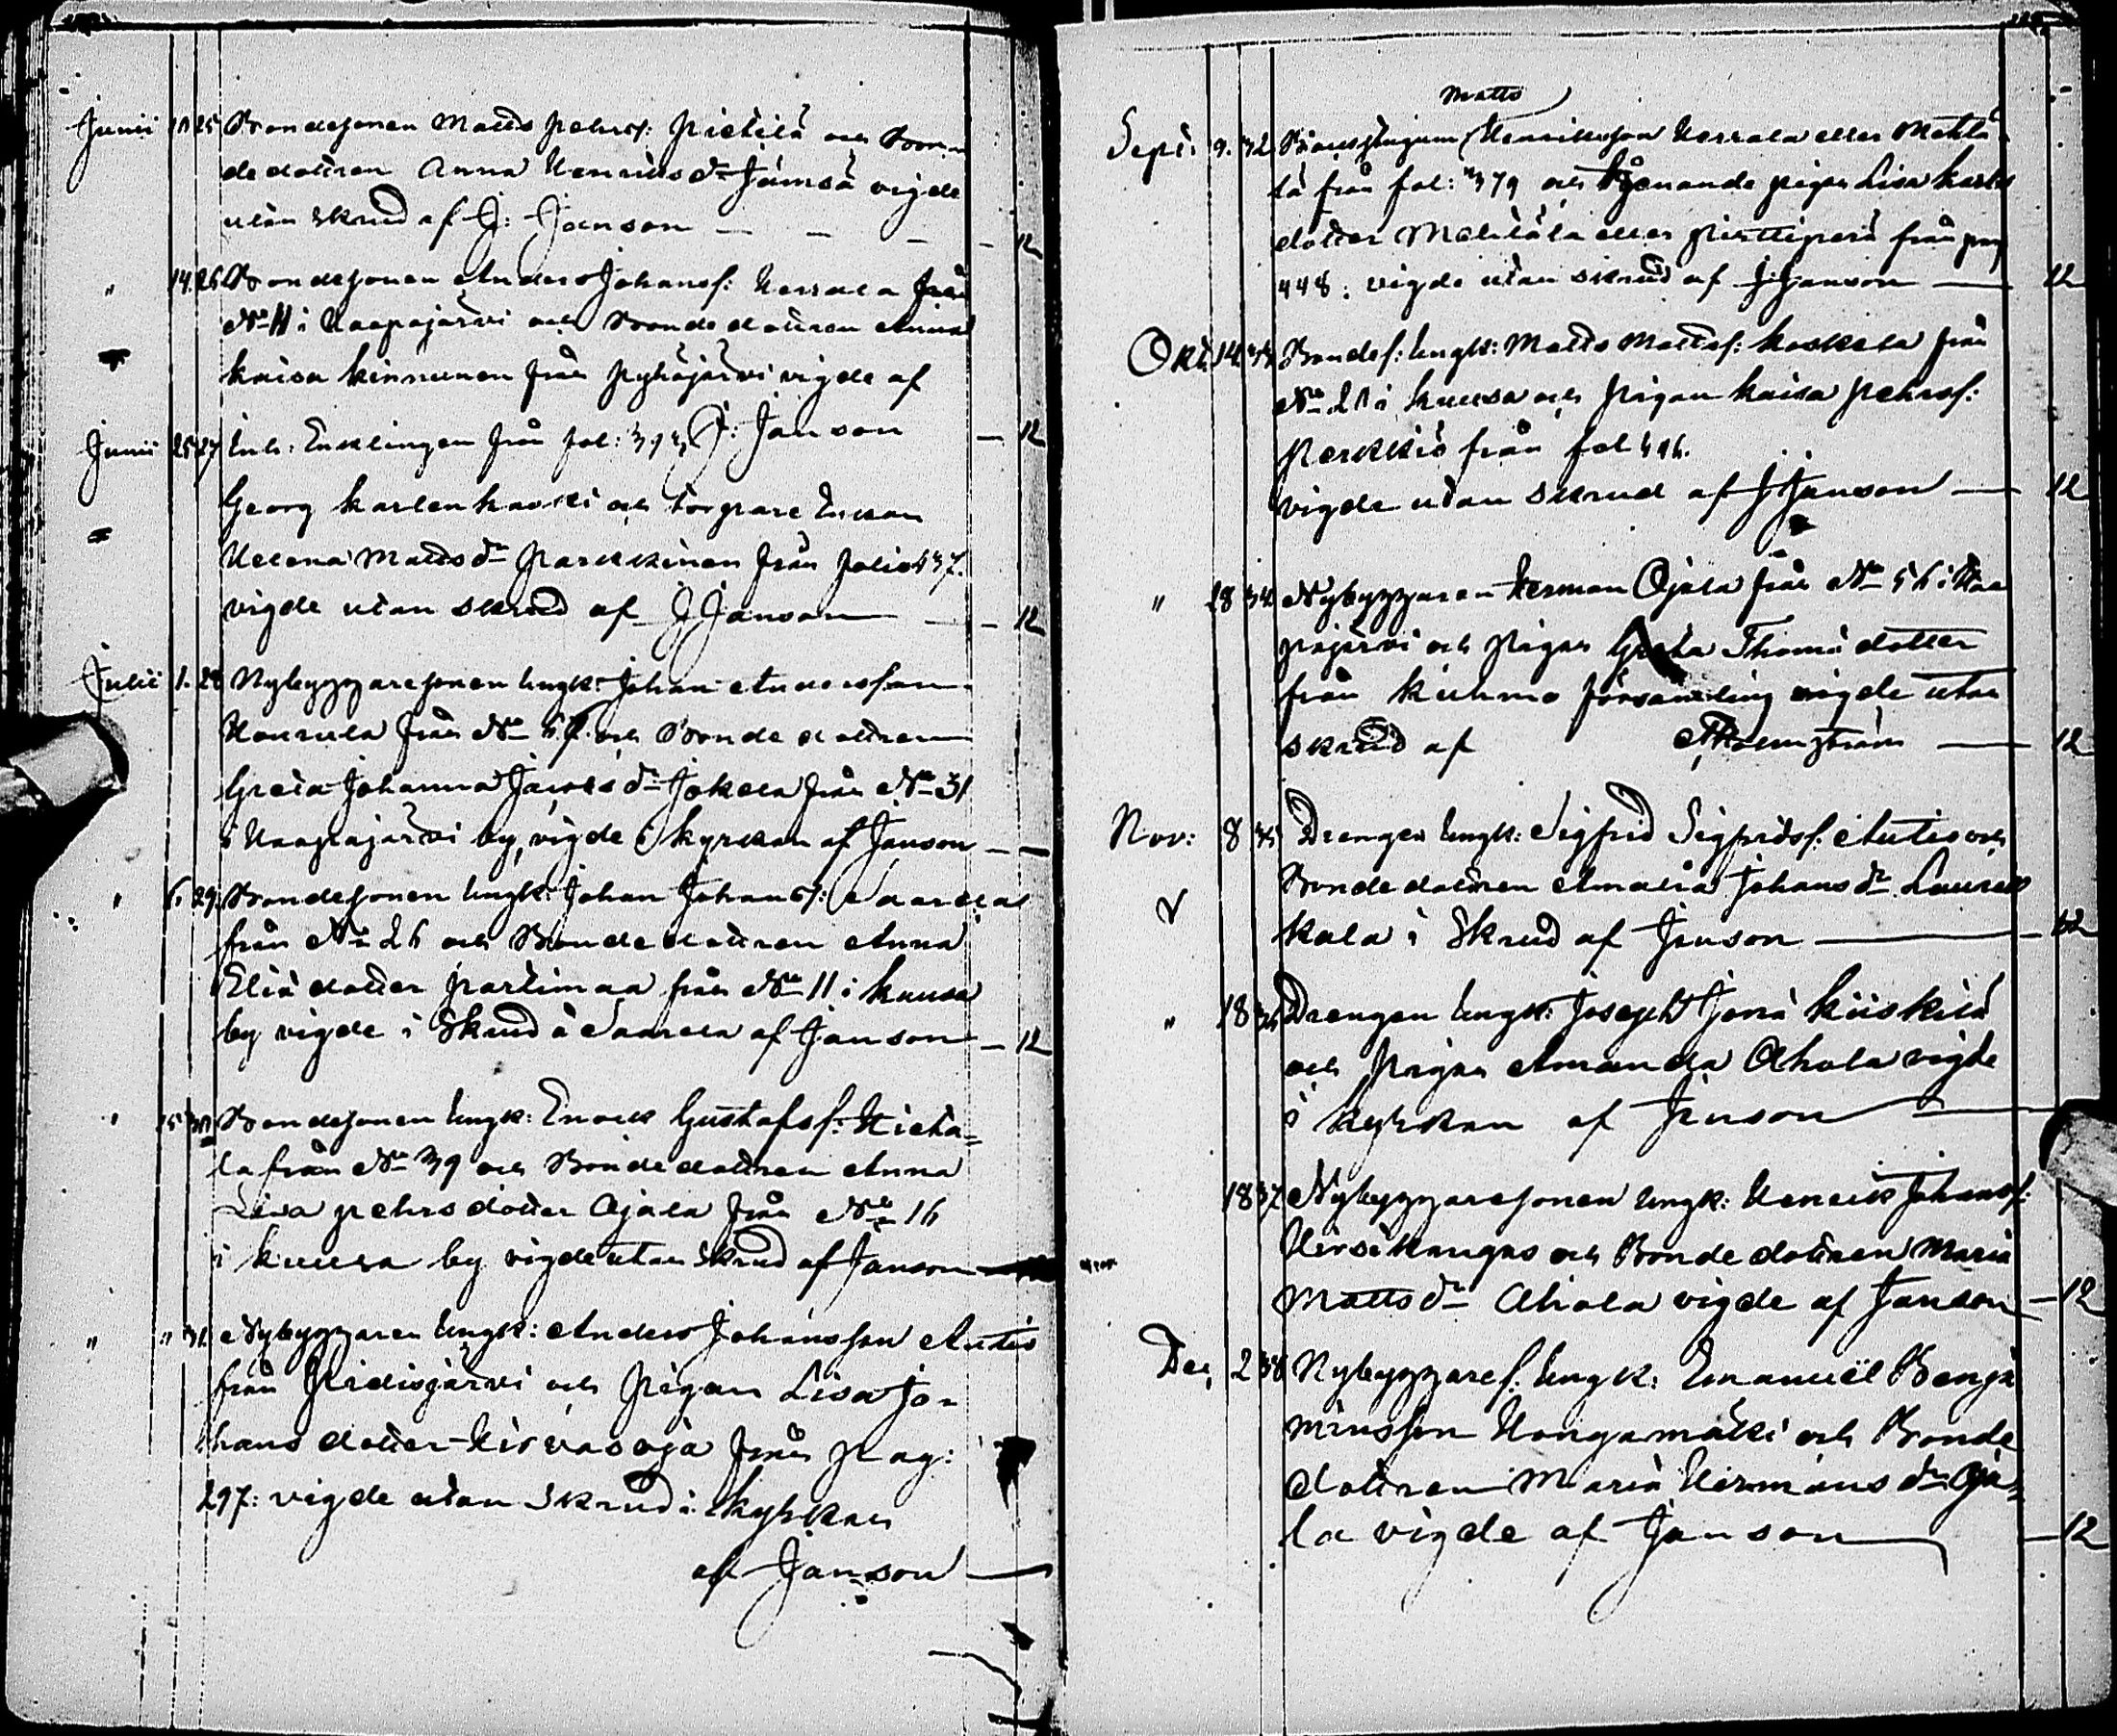 Junii 10 25 Bondesonen Matts Pehrs: Pietilä och Bon-
dedottren Anna Henriks dr Jämsä vigde
utan skrud af J: Janson — — — — 12
" 14. 26 Bondesonen Anders Johans: Herrala från
No 11 i Haapajärvi och Bondedottren Anna
Kaisa Kinnunen från Pyhäjärvi vigde af
J: Janson — 12
Junii 25 27 Inh: Enklingen från fol:
Georg Karlenkaski och Torpare Enkan
Helena Matts dr Parkkinen från folio
vigde utan skrud af J Janson — — 12
Julii 1. 28 Nybyggaresonen Ungk: Johan Andersson
från No och Bondedottren
Greta Johanna Jacobs dr Jokela från No 31
i Haapajärvi by, vigde i Kyrkan af Janson — —
" 6. 29. Bondesonen Ungk: Johan Johans: Saarela
från No 26 och Bondedottren Anna
Eliä dotter Partimaa från No 11 i Kuusa
by vigde i Skrud å Saarela af Janson — 12
" 15 30 Bondesonen Ungk: Enock Gustafs: Hieta-
la från No 39 och Bondedottren Anna
Lisa Pehrsdotter Ojala från No 16
i Kuusa by vigde utan Skrud af Janson —
" " 31 Nybyggaren Ungk: Anders Johansson Autio
från Pidisjärvi och Pigan Lisa Jo-
hansdotter Hirvasoja från Pag:
297: vigde utan Skrud i Kyrkan
af Janson —
Matts
Sept. 9. 32 Henriksson Herrala eller Mehtä-
lä från fol: 379 och tjenande pigan Lisa Karls
dotter Mehtälä eller Pirttiperä från pag
448: vigde utan skrud af J Janson — 12
Okt. 14 33 Bondes: Ungk: Matts Matts: Koskela från
No 21 i Kuusa och Pigan Kaisa Pehrs:
Perkkiö från fol
vigde utan Skrud af J Janson — 12
" 28 34 Nybyggaren Herman Ojala från No 56 i Haa
pajärvi och Pigan Greta Thomä dotter
från Kuhmo församling vigde utan
skrud af — 12
Nov: 8 35 Drengen Ungk: Sigfrid Sigfrids: Autio och
Bondedottren Amalia Johans dr Laurik
kala i Skrud af Janson — 12
" 18 36 Drengen Ungk: Joseph Jonä Kiiskilä
och Pigan Amanda Ahola vigde
i Kyrkan af Janson —
18 37 Nybyggaresonen Ungk: Henrik Johans:
Hirsikangas och Bondedottren Maria
Matts dr Ahola vigde af Janson — 12
Dec. 2 38 Nybyggares: Ungk: Emanuël Benja
minsson Hongamäki och Bonde
dottren Maria Hermans dr Oja-
la vigde af Janson — 12